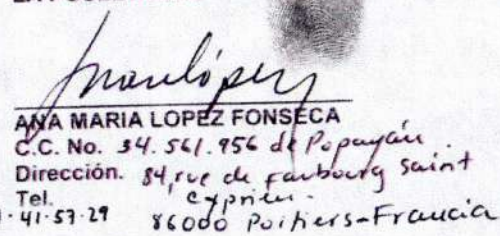 ANA MARIA LOPEZ FONSECA
C.C. No. 34.561.956 de Popayán.
Dirección. 84, rue de faubourg Saint
Tel. Cyprien.
41-57-29 86000 Poitiers-Francia